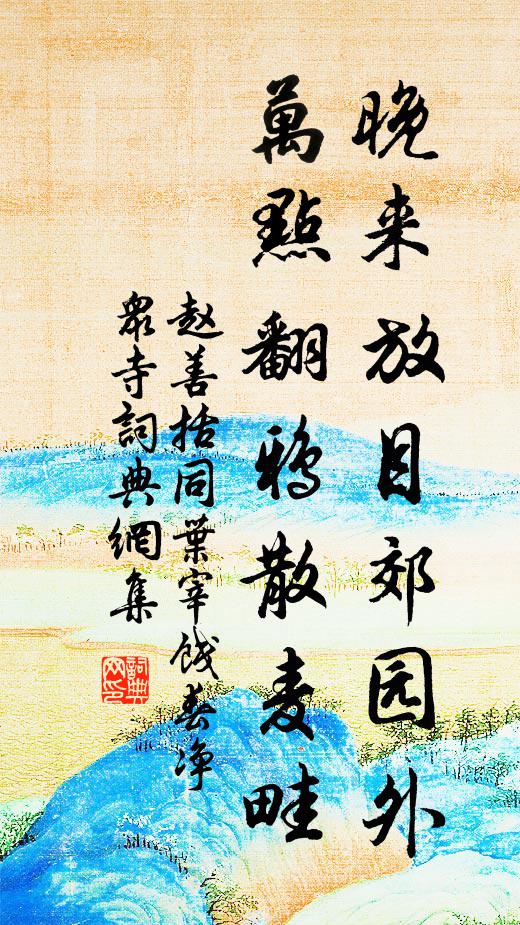 晚来放目郊园外
萬點翻鴉散麦畦
赵善括同葉宰餞春净
眾寺詞典網集
詞典网印